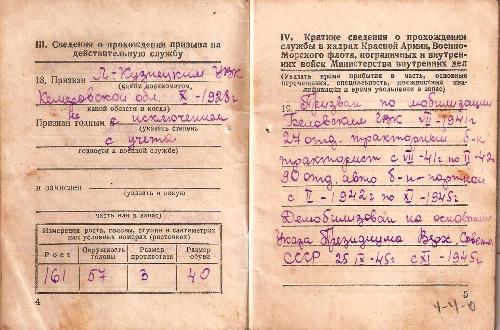 III. Сведения о прохождении призыва на
действительную службу
18. Призван Л-Кузнецким ГВК
(каким военкоматом,
Кемеровской обл. X-1928г
какой области и когда)
Признан годным не с исключением
(указать степень
с учета
годности к военной службе)
и зачислен
(указать в какую
часть или в запас)
Измерения роста, головы, ступни в сантиметрах
или условных номерах (ростовках)
Рост Окружность головы Размер противогаза Размер обуви
161 57 3 40
4
IV. Краткие сведения о прохождении
службы в кадрах Красной Армии, Военно-
Морского флота, пограничных и внутрен-
них войск Министерства внутренних дел
(Указать время прибытия в часть, основные
перемещения, специальность, должностная ква-
лификация и время увольнения в запас)
19. Призван по мобилизации
Беловским ГВК VII-1941г
27 отд. тракторный б-н
тракторист с VII-41г по II-42
90 отд. авто б-н-портной
с II-1942г по XI-1945г
Демобилизован на основан
Указа Президиума Верх Совета
СССР 25 IX-45г с XI-1945г
5